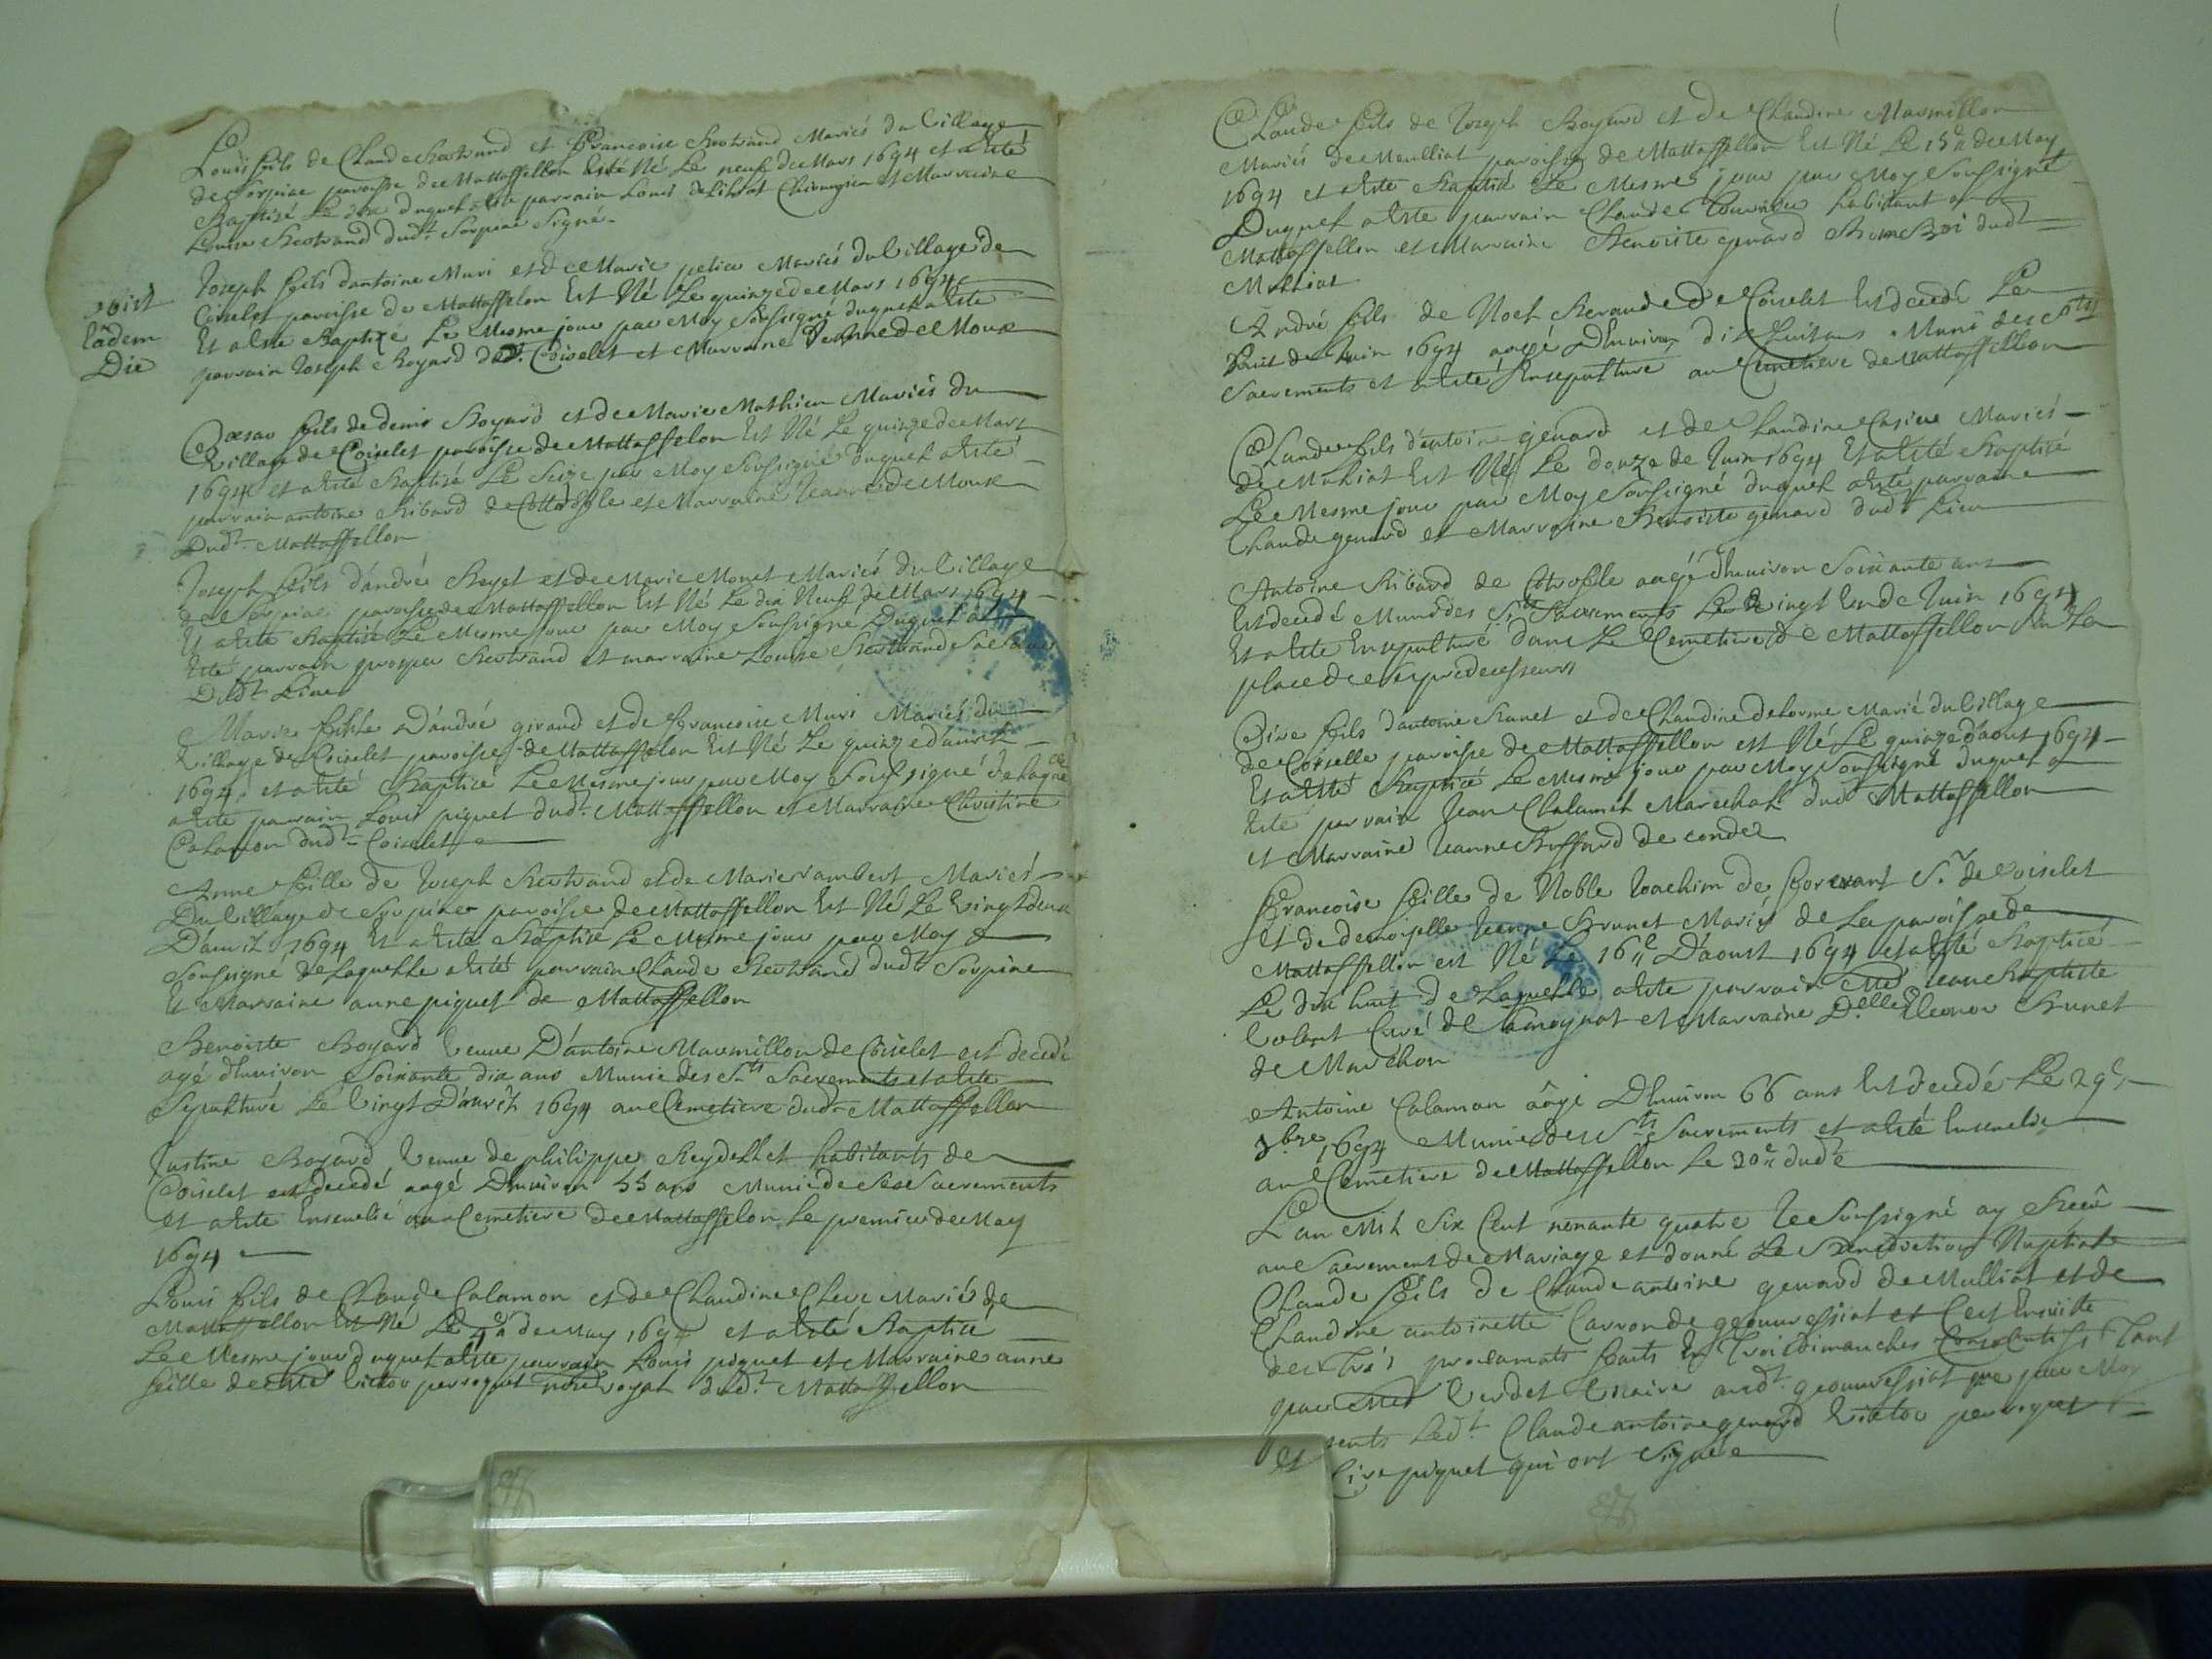 Louis fils de Claude Bertrand et Francoise Bertrand Mariés du Village
de Sorpiae paroisse de Mattaffellon Est Né Le neuf de Mars 1694 et a Esté
Baptizé Le dix duquel a Esté parrain Louis Chirurgien et Marraine
Louise Bertrand dudt Sorpiae Signé.
Joseph fils dantoine Muri et de Marie Mariés du Village de
Coiselet paroisse de Mattaffelon Est Né Le quinze de Mars 1694
Et a Esté Baptizé Le Mesme jour par Moy Soussigné duquel a Esté
parrain Joseph Boyard dudt Coiselet et Marraine Jeanne de Moux
obiit
Eâdem
Die
Cæsar fils de denis Boyard et de Marie Mathieu Mariés du
Village de Coiselet paroisse de Mattaffelon Est Né Le quinze de Mars
1694 et a Esté Baptizé Le Seize par Moy Soussigné duquel a Esté
parrain antoine Ribard de et Marraine Jeanne de Moux
Dudt Mattaffellon
Joseph fils d'andré Reyet et de Marie Monet Mariés du Village
de Sorpiae paroisse de Mattaffellon Est Né Le dix Neuf de Mars 1694
Et a Esté Baptizé Le Mesme jour par Moy Soussigné Duquel a
Esté parrain prosper Bertrand et marraine Louise Bertrand
Dudt Lieu
Marie fille D'andré giraud et de Francoise Muri Mariés du
Village de Coiselet paroisse de Mattaffelon Est Né Le quinze d'auril
1694 et a Esté Baptizé Le Mesme jour par Moy Soussigné de laqlle
a Esté parrain Louis piquet dudt Mattaffellon et Marraine Christine
Calamon dudt Coiselet
Anne fille de Joseph Bertrand et de Marie rambert Mariés
Du Village de Sorpiae paroisse de Mattaffellon Est Né Le Vingt deux
D'auril 1694 Et a Esté Baptizé Le Mesme jour par Moy
Soussigné de Laquelle a Esté parrain Claude Bertrand dudt Sorpiae
Et Marraine anne piquet de Mattaffellon
Benoiste Boyard Veuue D'antoine Marmillon de Coiselet est decedé
agé d'Enuiron Soixante dix ans Munie des Sts Sacrements et a Esté
Sepulturé Le Vingt D'auril 1694 au Cemetiere dudt Mattaffellon
Justine Boyard Veuue de philippe Reydellet habitants de
Coiselet est decedé aagé D'enuiron 55 ans Munie de Ses Sacrements
et a Esté Enseuelie au Cemetiere de Mattaffelon Le premier de May
1694
Louis fils de Claude Calamon et de Claudine Mariés de
Mattaffellon Est Né Le de May 1694 et a Esté Baptizé
Le Mesme jour duquel a Este parrain Louis piquet et Marraine anne
fille de Victor perroquet royal dudt Mattaffellon
Claude fils de Joseph Boyard et de Claudine Marmillon
Mariés de Meulliat paroisse de Mattaffellon Est Né Le 15e de May
1694 et a Esté Baptizé Le Mesme jour par Moy Soussigné
Duquel a Este parrain Claude habitant a
Mattaffellon et Marraine Benoiste genard dudt
Mulliat
André fils de Noel de Coiselet Est decedé Le
huit de Juin 1694 aagé D'enuiron dix huit ans Muni des Sts
Sacrements et a Esté Ensepulturé au Cemetiere de Mattaffellon
Claude fils d'antoine genard et de Claudine Mariés
de Muliat Est Né Le douze de Juin 1694 Et a Esté Baptizé
Le Mesme jour par Moy Soussigné duquel a Esté parrain
Claude genard et Marraine Benoiste genard dudt Lieu
Antoine Ribard de aagé d'Enuiron Soixante ans
Est decedé Muni des Sts Sacrements Le Vingt Un de Juin 1694
Et a Esté Ensepulturé dans Le Cemetiere de Mattaffellon En La
place de Ses predecesseurs
fils d'antoine Brunet et de Claudine delorme Marié du Village
de Coiselle paroisse de Mattaffellon est Né Le quinze d'aout 1694
Et a Esté Baptizé Le Mesme jour par Moy Soussigné duquel a
Esté parrain Jean Chalamel Marechal dudt Mattaffellon
et Marraine Jeanne de
Francoise fille de Noble Joachim de Sr de Coiselet
Et de demoiselle Jeanne Brunet Mariés de La paroisse de
Mattaffellon est Né Le 16e D'aoust 1694 et a Esté Baptizé
Le dix huit de Laquelle a Esté parrain Jean baptiste
Volant Curé de Samognat et Marraine Delle Eleonor Brunet
de Marchon
Antoine Calamon âagé D'Enuiron 66 ans Est decedé Le 29e
1694 Munie des Sts Sacrements et a Esté Enseuelie
au Cemetiere de Mattaffellon Le 30e dudt
L'an Mil Six Cent nonante quatre Je Soussigné ay Receû
au Sacrement de Mariage et donné La Benediction Nuptiale
Claude fils de Claude antoine genard de Mulliat et de
Claudine antoinette Carron de geouuressiat et C'est Ensuitte
des Trois proclamats faits En trois dimanches Consecutifs Tant
par Verdet Vicaire audt geouuressiat que par Moy
sents Ledt Claude antoine genard Victor perroquet
Et piquet qui ont Signé